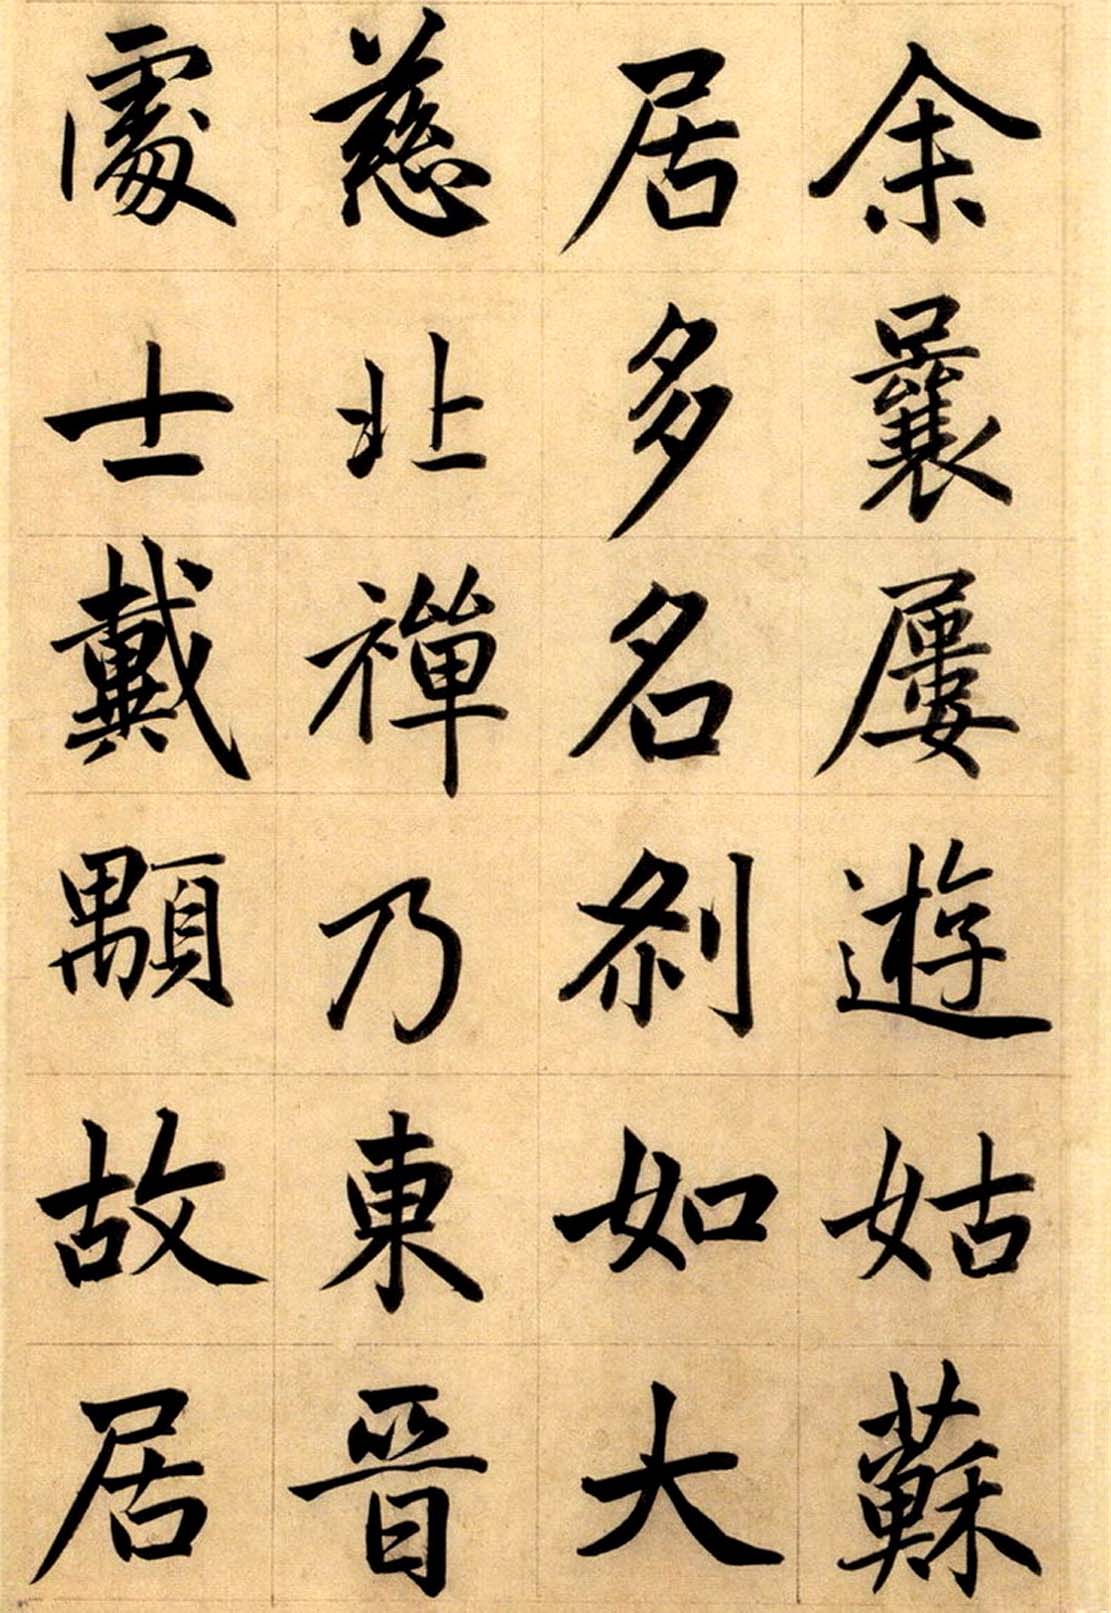 余曩屢遊姑蘇
居多名剎如大
慈北禪乃東晉
處士戴顒故居